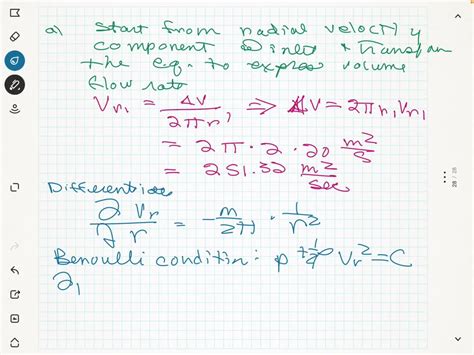 a) Start from radial velocity
component @ inlet & Transform
the eq. to express volume
flow rate
Vr₁ = ΔV / 2πr₁ ⇒ ΔV = 2πr₁Vr₁
= 2π · 2 · 20 m²/s
= 251.32 m²/sec
Differentiate
∂Vr / ∂r = - m/2π · 1/r²
Benoulli condition: p + ½ρ Vr² = C
∂₁
28 / 28